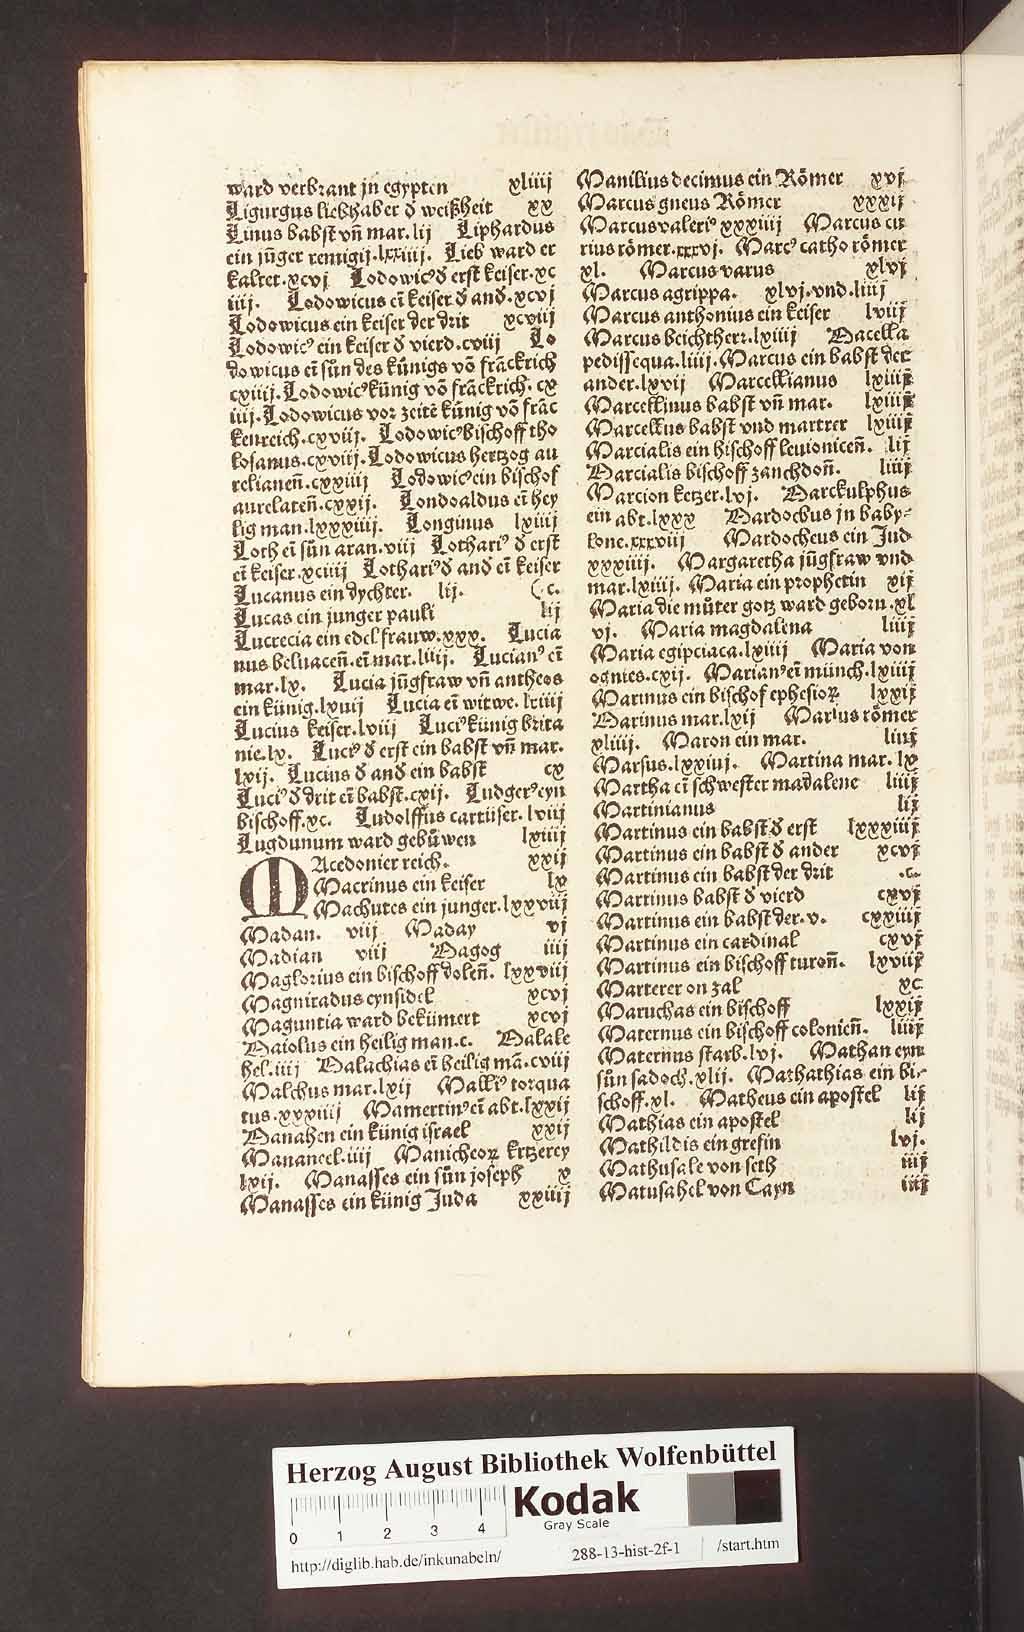 ward verbrant jn egypten xliiij
Ligurgus liebhaber d̕ weißheit xx
Linus babst vñ mar. lij Liphardus
ein jũger remigij. lxxiiij. Lieb ward er
kaltet. xcvj Lodowicꝰ d̕ erst keiser. xc
iiij. Lodowicus eĩ keiser d̕ and̕. xcvj
Lodowicus ein keiser der drit xcviij
Lodowicꝰ ein keiser d̕ vierd. cviij Lo
dowicus eĩ sůn des kúnigs võ frãckrich
cxiiij. Lodowicꝰ kúnig võ frãckrich. cx
iiij. Lodowicus vor zeitẽ kúnig võ frãc
kenreich. cxvij. Lodowicꝰ bischoff tho
losanus. cxviij. Lodowicus hertzog au
relianeñ. cxxiiij Lodowicꝰ ein bischof
aurelateñ. cxxij. Londoaldus eĩ hey
lig man. lxxxiiij. Longinus lxiiij
Loth eĩ sůn aran. viij Lothariꝰ d̕ erst
eĩ keiser. xciiij Lothariꝰ d̕ and̕ eĩ keiser
Lucanus ein dychter. lij. (c.
Lucas ein junger pauli lij
Lucrecia ein edel frauw. xxx. Lucia
nus beluaceñ. eĩ mar. liiij. Lucianꝰ eĩ
mar. lx. Lucia jũgfraw vñ antheos
ein kúnig. lxvij Lucia eĩ witwe. lxiiij
Lucius keiser. lviij Luciꝰ kúnig brita
nie. lx. Luciꝰ d̕ erst ein babst vñ mar.
lxij. Lucius d̕ and̕ ein babst cx
Luciꝰ d̕ drit eĩ babst. cxij. Ludgerꝰ eyn
bischoff. xc. Ludolffus cartúser. lviij
Lugdunum ward gebůwen lxiiij
MAcedonier reich. xxij
Macrinus ein keiser lx
Machutes ein junger. lxxviij
Madan. viij Maday vj
Madian viij Magog iiij
Maglorius ein bischoff doleñ. lxxviij
Magniradus eynsidel xcvj
Maguntia ward bekúmert xcvj
Maiolus ein heilig man. c. Malale
hel. iiij Malachias eĩ heilig mã. cviij
Malchus mar. lxij Malliꝰ torqua
tus. xxxiiij Mamertinꝰ eĩ abt. lxxij
Manahen ein kúnig israel xxij
Mananeel. iiij Manicheoꝝ krtzerey
lxij. Manasses ein sůn joseph x
Manasses ein kúnig Juda xxiiij
Manilius decimus ein Rômer xvj
Marcus gneus Rômer xxxij
Marcus valeriꝰ xxxiiij Marcus cu
rius rômer. xxxvj. Marcꝰ catho rômer
xl. Marcus varus xlvj
Marcus agrippa. xlvj. vnd. liiij
Marcus anthonius ein keiser lviij
Marcus beichtherr. lxiiij Macella
pedissequa. liiij. Marcus ein babst der
ander. lxvij Marcellianus lxiiij
Marcellinus babst vñ mar. lxiiij
Marcellus babst vnd martrer lxiiij
Marcialis ein bischoff leuioniceñ. lij
Marcialis bischoff zanchdoñ. liiij
Marcion ketzer. lvj. Marckulphus
ein abt. lxxx Mardocbus jn baby⸗
lone. xxxviij Mardocheus ein Jud
xxxiiij. Margaretha jũgfraw vnd
mar. lxiiij. Maria ein prophetin xij
Maria die můter gotz ward geborn. xl
vj. Maria magdalena liiij
Maria egipciaca. lxiiij Maria von
ognies. cxij. Marianꝰ eĩ münch. lxiiij
Marinus ein bischof ephesioꝝ lxxij
Marinus mar. lxij Marius rômer
xliiij. Maron ein mar. liiij
Marsus. lxxiiij. Martina mar. lx
Martha eĩ schwester madalene liiij
Martinianus lij
Martinus ein babst d̕ erst lxxxiiij
Martinus ein babst d̕ ander xcvj
Martinus ein babst der drit .c.
Martinus babst d̕ vierd cxvj
Martinus ein babst der. v. cxxiiij
Martinus ein cardinal cxvj
Martinus ein bischoff turoñ. lxviij
Marterer on zal xc
Maruchas ein bischoff lxxij
Maternus ein bischoff colonieñ. liiij
Maternus starb. lvj. Mathan eyn
sůn sadoch. xlij. Mathathias ein bi⸗
schoff. xl. Matheus ein apostel lij
Mathias ein apostel lij
Mathildis ein grefin lvj.
Mathusale von seth iiij
Matusahel von Cayn iiij
Herzog August Bibliothek Wolfenbüttel
0 1 2 3 4
Kodak
Gray Scale
http://diglib.hab.de/inkunabeln/ 288-13-hist-2f-1 /start.htm